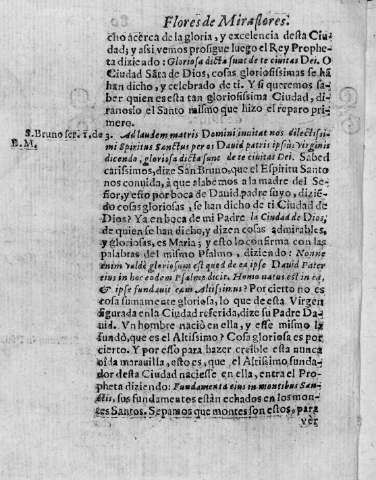 Flores de Miraflores.
cho acerca de la gloria, y excelencia desta Ciu
dad; y assi vemos prosigue luego el Rey Prophe
ta diziendo: Gloriosa dicta sunt de te ciuitas Dei. O
Ciudad Sãta de Dios, cosas gloriosissimas se hã
han dicho, y celebrado de ti. Y si queremos sa-
ber quien es esta tan gloriosissima Ciudad, di-
ranoslo el Santo mismo que hizo el reparo pri-
mero.
S. Bruno ser. 1. de
B. M.
3. Ad laudem matris Domini inuitat nos dilectissi-
mi Spiritus Sanctus per os Dauid patris ipsius Virginis
dicendo, gloriosa dicta sunt de te ciuitas Dei. Sabed
carissimos, dize San Bruno, que el Espiritu Santo
nos conuida, à que alabemos a la madre del Se-
ñor, y esto por boca de Dauid padre suyo, dizié
do cosas gloriosas, se han dicho de ti Ciudad de
Dios? Ya en boca de mi Padre la Ciudad de Dios,
de quien se han dicho, y dizen cosas admirables,
y gloriosas, es Maria; y esto lo confirma con las
palabras del mismo Psalmo, diziendo: Nonne
enim valdè gloriosum est qued de ea ipse Dauid Pater
eius in hoc eodem Psalmo dicit. Homo natus est in ea,
& ipse fundauit eam Altissimus? Por cierto no es
cosa sumamente gloriosa, lo que de esta Virgen
figurada en la Ciudad referida, dize su Padre Da-
uid. Vn hombre naciò en ella, y esse mismo la
fundò, que es el Altissimo? Cosa gloriosa es por
cierto. Y por esso para hazer creible esta nunca
oida marauilla, esto es, que el Altissimo funda-
dor desta Ciudad naciesse en ella, entra el Pro-
pheta diziendo: Fundamenta eius in montibus San-
ctis, sus fundamentos estàn echados en los mon-
tes Santos. Sepamos que montes son estos, para
vèr